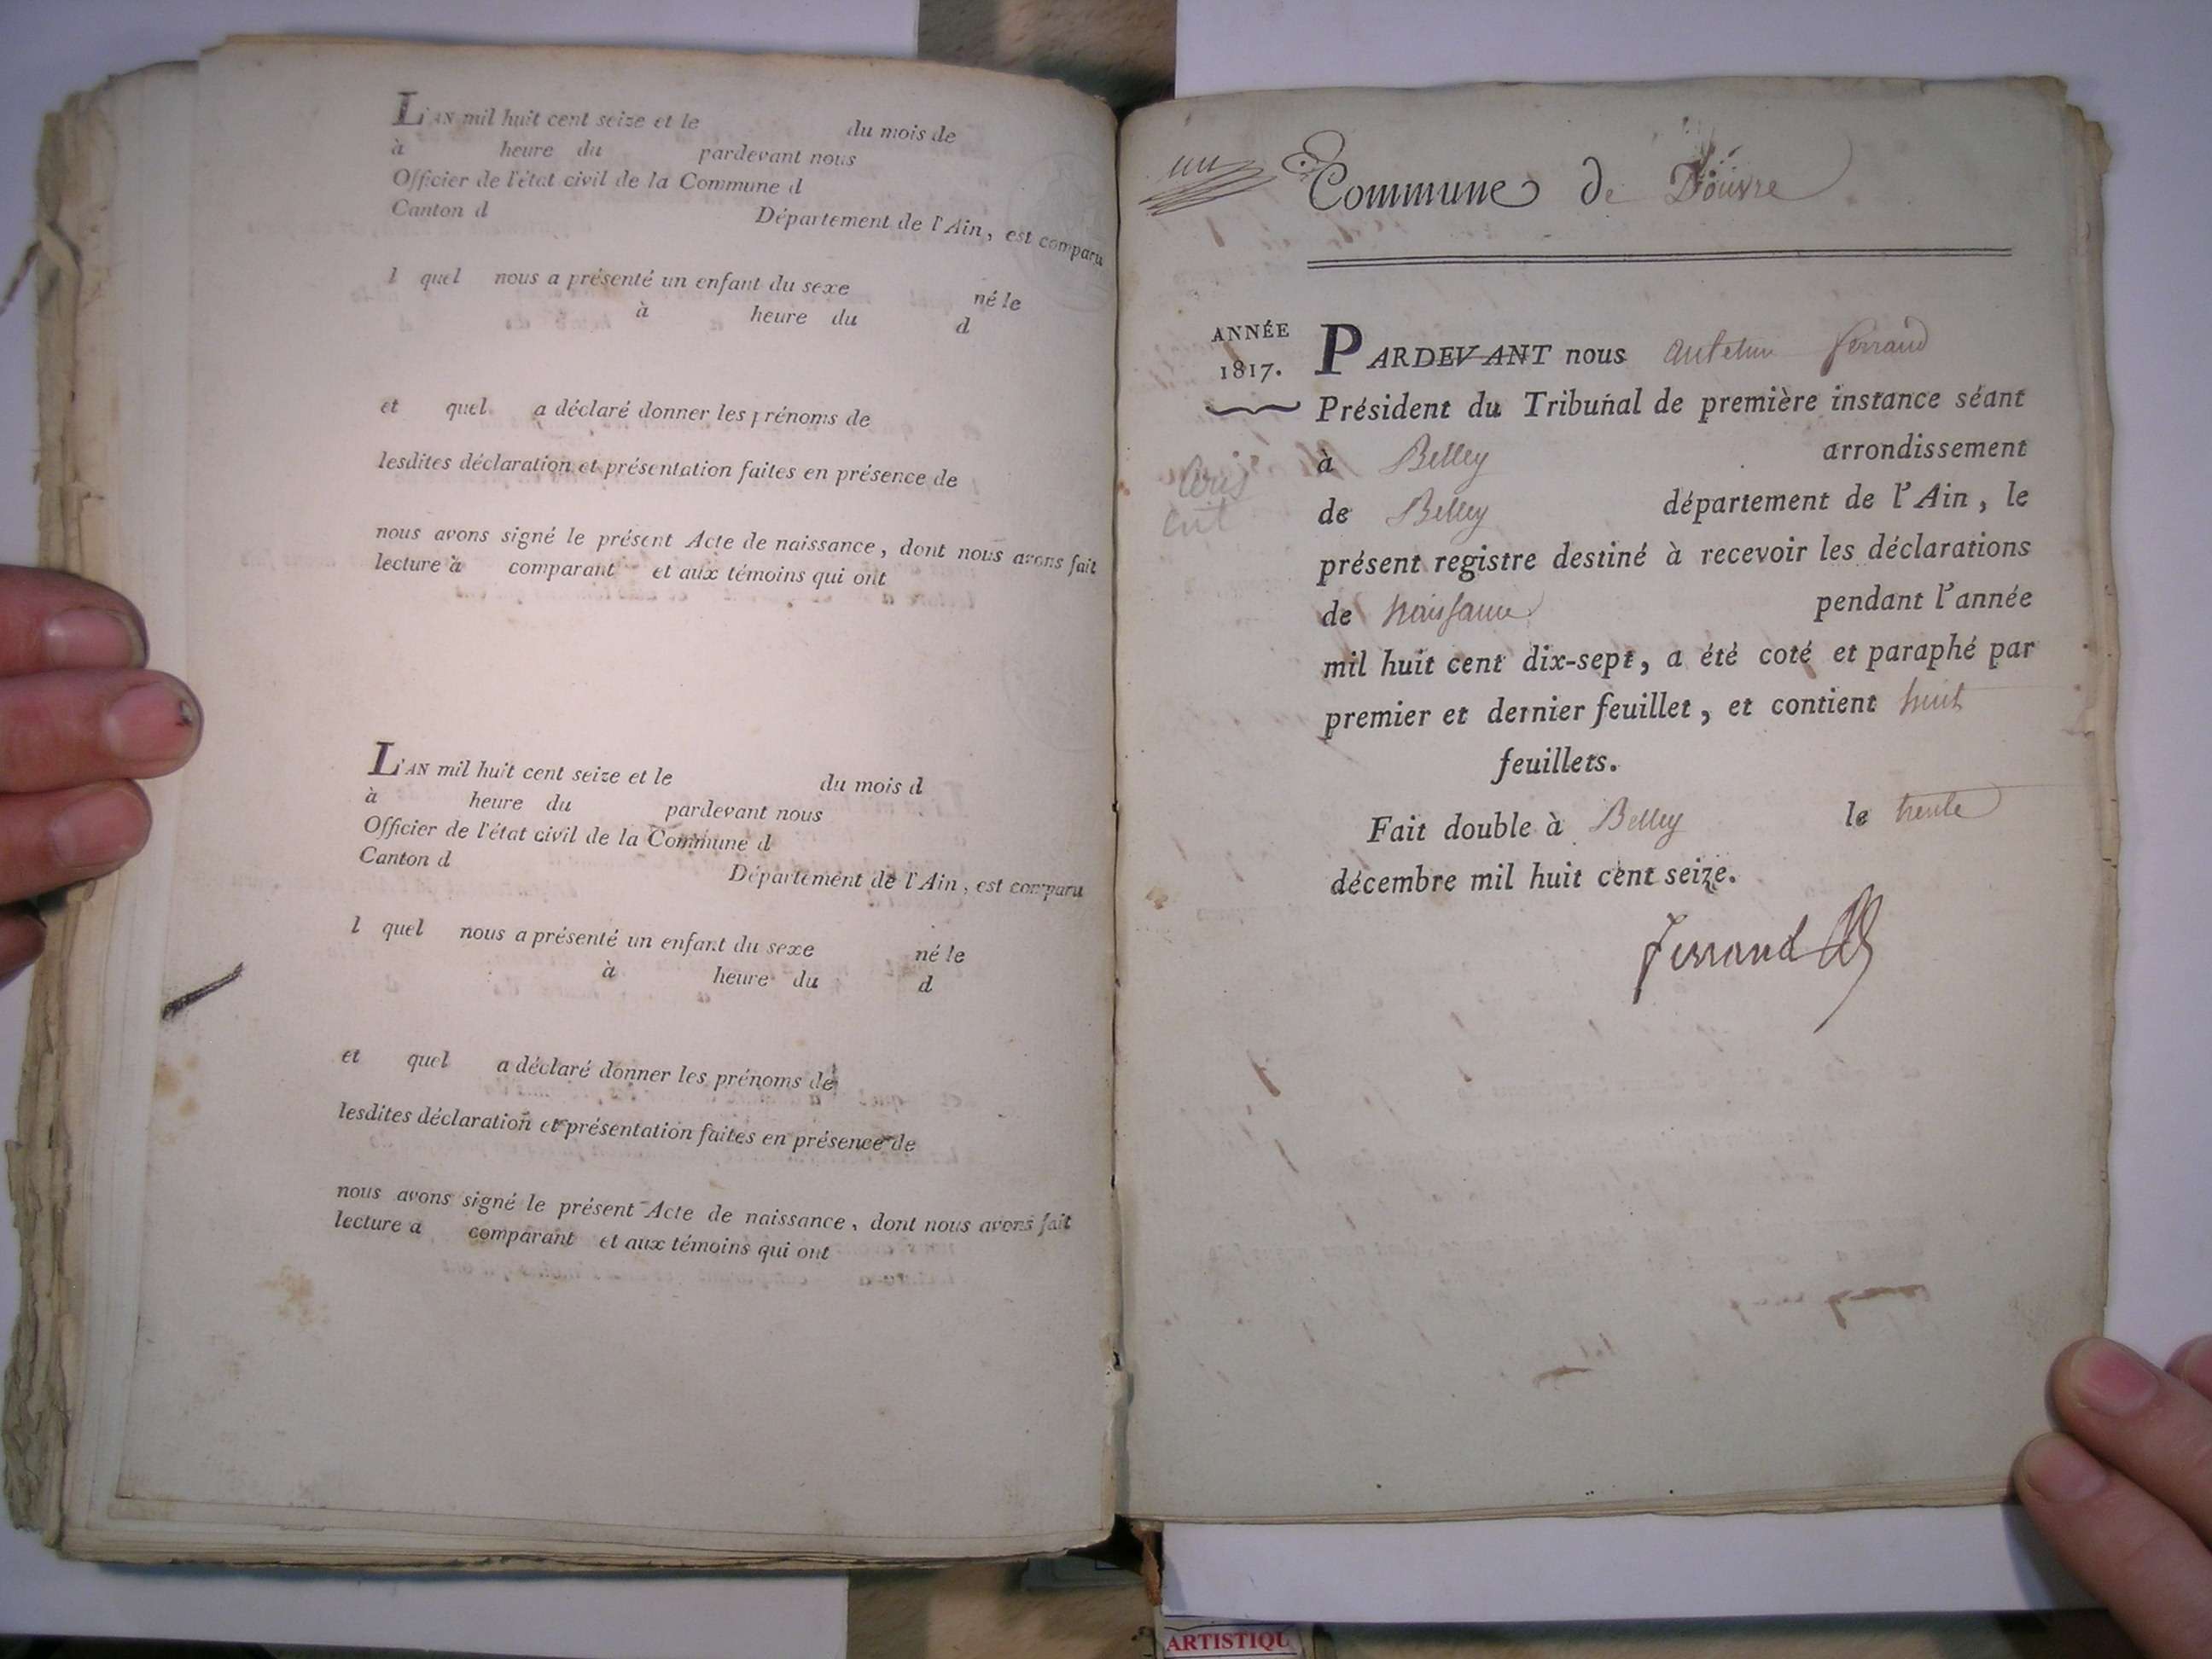 L'AN mil huit cent seize et le du mois de
à heure du pardevant nous
Officier de l'état civil de la Commune d
Canton d Département de l'Ain, est comparu
l quel nous a présenté un enfant du sexe né le
à heure du d
et quel a déclaré donner les prénoms de
lesdites déclaration et présentation faites en présence de
nous avons signé le présent Acte de naissance, dont nous avons fait
lecture à comparant et aux témoins qui ont
L'AN mil huit cent seize et le du mois d
à heure du pardevant nous
Officier de l'état civil de la Commune d
Canton d Département de l'Ain, est comparu
l quel nous a présenté un enfant du sexe né le
à heure du d
et quel a déclaré donner les prénoms de
lesdites déclaration et présentation faites en présence de
nous avons signé le présent Acte de naissance, dont nous avons fait
lecture a comparant et aux témoins qui ont
un
Commune de Douvre
ANNÉE
1817.
PARDEVANT nous antelme ferrand
Président du Tribunal de première instance séant
à Belley arrondissement
de Belley département de l'Ain, le
présent registre destiné à recevoir les déclarations
de naissance pendant l'année
mil huit cent dix-sept, a été coté et paraphé par
premier et dernier feuillet, et contient huit
feuillets.
Fait double à Belley le trente
décembre mil huit cent seize.
ferrand
ARTISTIQU